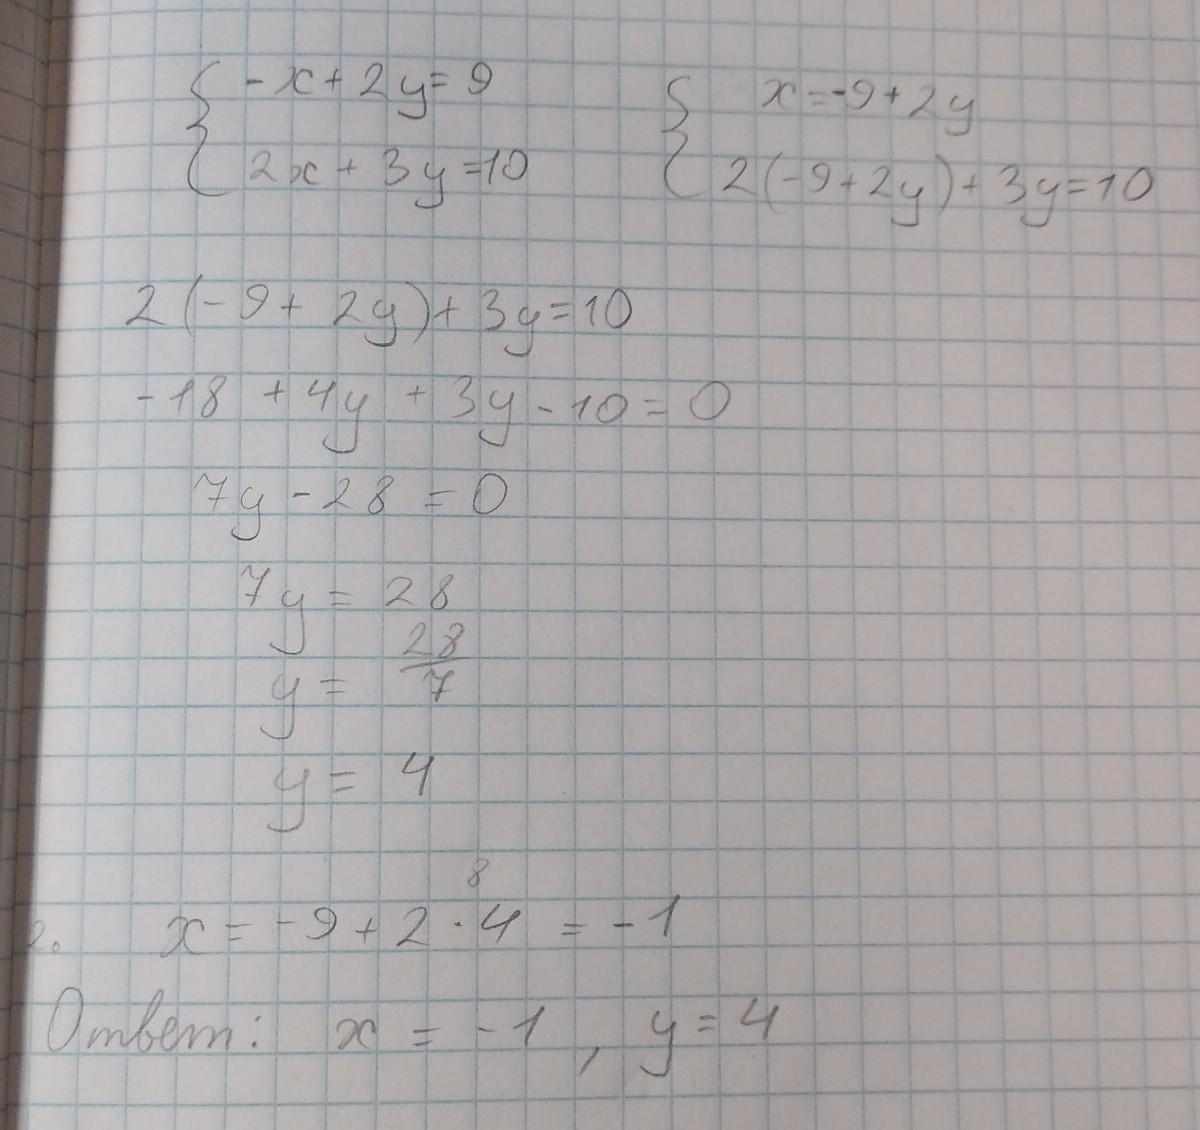 -x+2y=9
2x+3y=10
x=-9+2y
2(-9+2y)+3y=10
2(-9+2y)+3y=10
-18+4y+3y-10=0
7y-28=0
7y=28
y=28/7
y=4
8
x=-9+2·4=-1
Ответ: x=-1, y=4